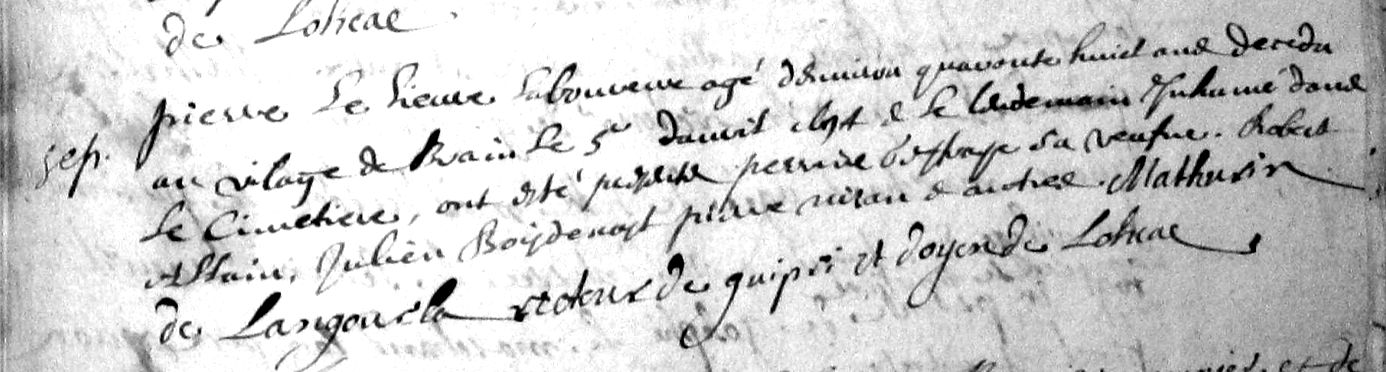 de Loheac
pierre Le lieuve labouveuve agé d'environ quavente huict ans decedu
sep. au vilage de Brain le 5e d'avril et le lendemain Inhumé dans
le Cimetiere, ont esté presents perrine sa veufve. Robert
Allain, Julien Boisdenost pierre & autres. Mathurin
de Langourla recteur de guipri et doyen de Loheac
et de